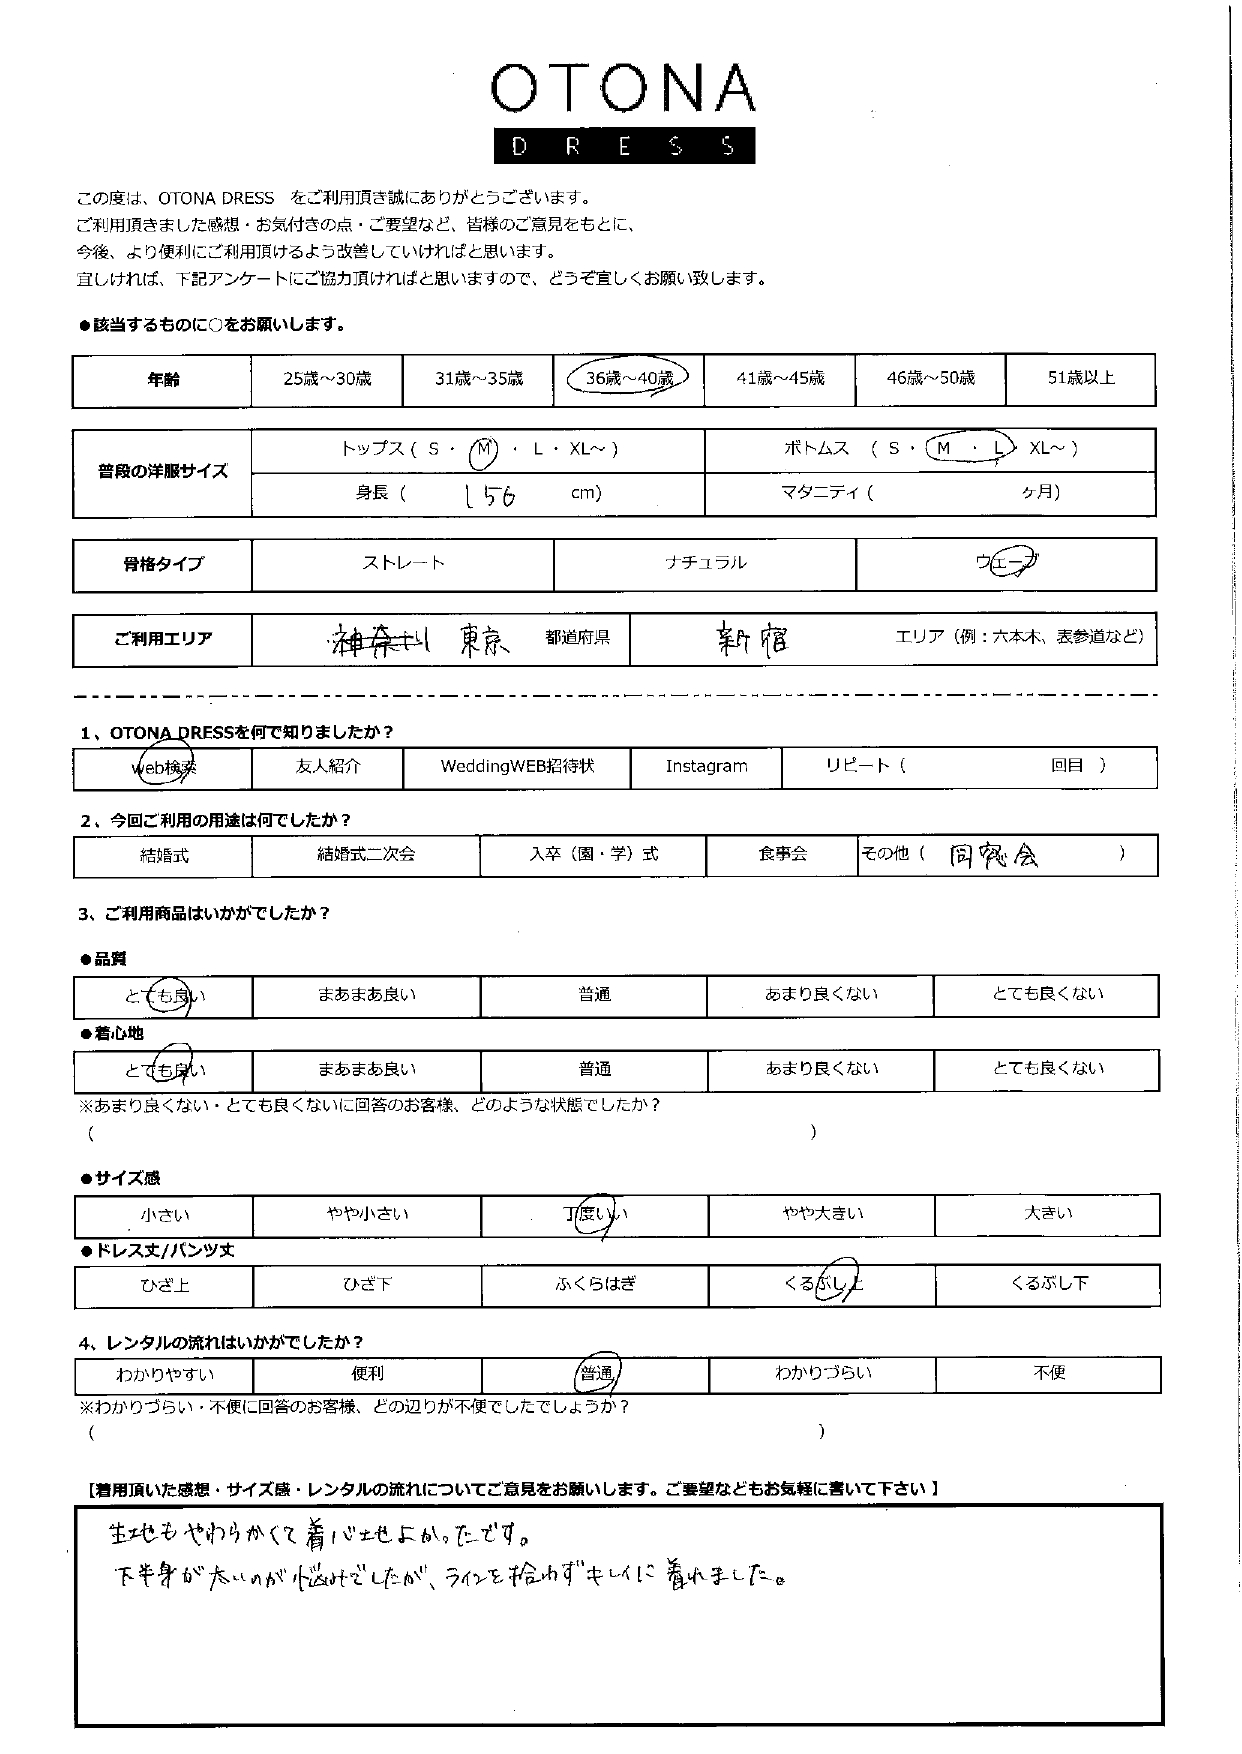 OTONA
DRESS
この度は、OTONA DRESS をご利用頂き誠にありがとうございます。
ご利用頂きました感想・お気付きの点・ご要望など、皆様のご意見をもとに、
今後、より便利にご利用頂けるよう改善していければと思います。
宜しければ、下記アンケートにご協力頂ければと思いますので、どうぞ宜しくお願い致します。
●該当するものに○をお願いします。
年齢 25歳～30歳 31歳～35歳 36歳～40歳 41歳～45歳 46歳～50歳 51歳以上
普段の洋服サイズ トップス ( S ・ M ・ L ・ XL～ ) ボトムス ( S ・ M ・ L XL～ )
身長 ( 156 cm) マタニティ ( ヶ月)
骨格タイプ ストレート ナチュラル ウェーブ
ご利用エリア 神奈川 東京 都道府県 新宿 エリア（例：六本木、表参道など）
1、OTONA DRESSを何で知りましたか？
web検索 友人紹介 WeddingWEB招待状 Instagram リピート ( 回目 )
2、今回ご利用の用途は何でしたか？
結婚式 結婚式二次会 入卒（園・学）式 食事会 その他 ( 同窓会 )
3、ご利用商品はいかがでしたか？
●品質
とても良い まあまあ良い 普通 あまり良くない とても良くない
●着心地
とても良い まあまあ良い 普通 あまり良くない とても良くない
※あまり良くない・とても良くないに回答のお客様、どのような状態でしたか？
( )
●サイズ感
小さい やや小さい 丁度いい やや大きい 大きい
●ドレス丈/パンツ丈
ひざ上 ひざ下 ふくらはぎ くるぶし上 くるぶし下
4、レンタルの流れはいかがでしたか？
わかりやすい 便利 普通 わかりづらい 不便
※わかりづらい・不便に回答のお客様、どの辺りが不便でしたでしょうか？
( )
【着用頂いた感想・サイズ感・レンタルの流れについてご意見をお願いします。ご要望などもお気軽に書いて下さい】
生地もやわらかくて着心地よかったです。
下半身が太いのが悩みでしたが、ラインを拾わずキレイに着れました。